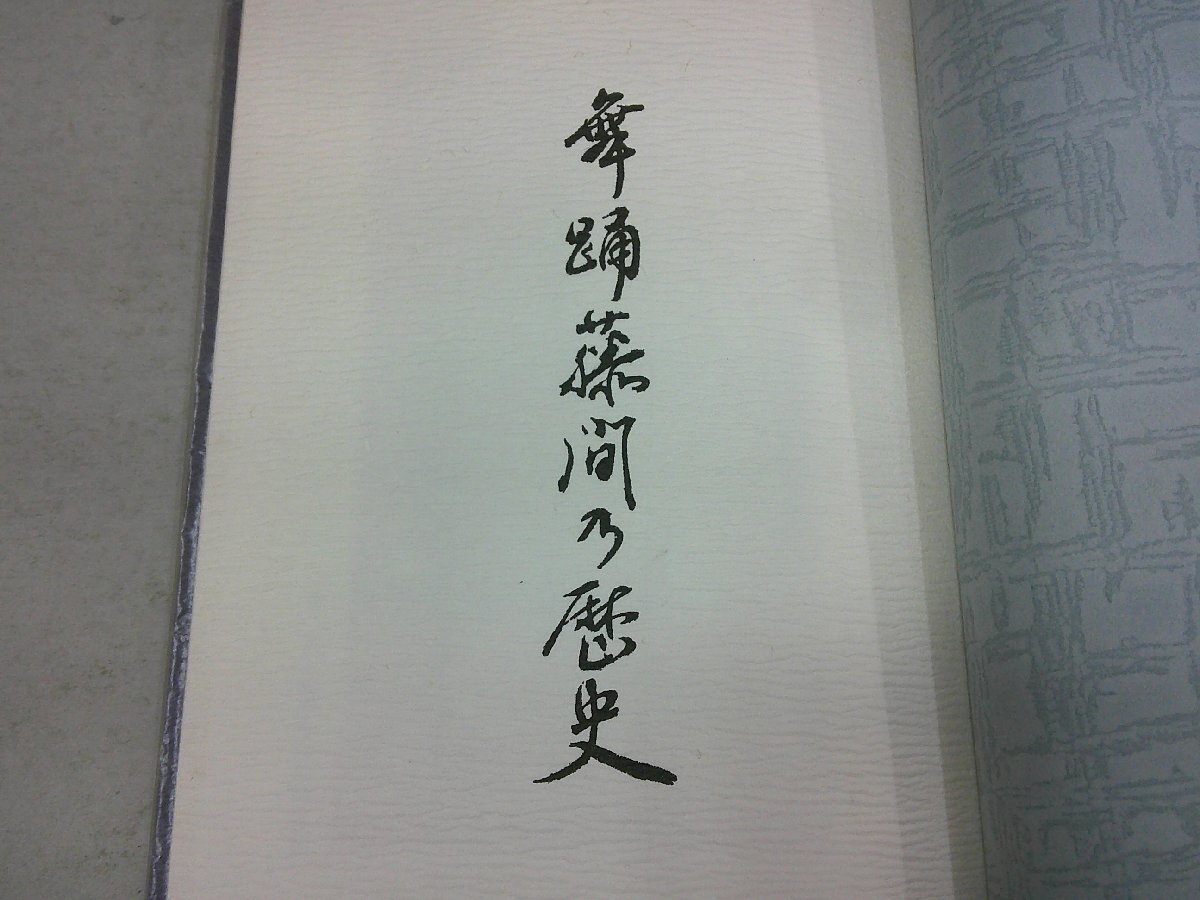 舞踊藤間乃歴史